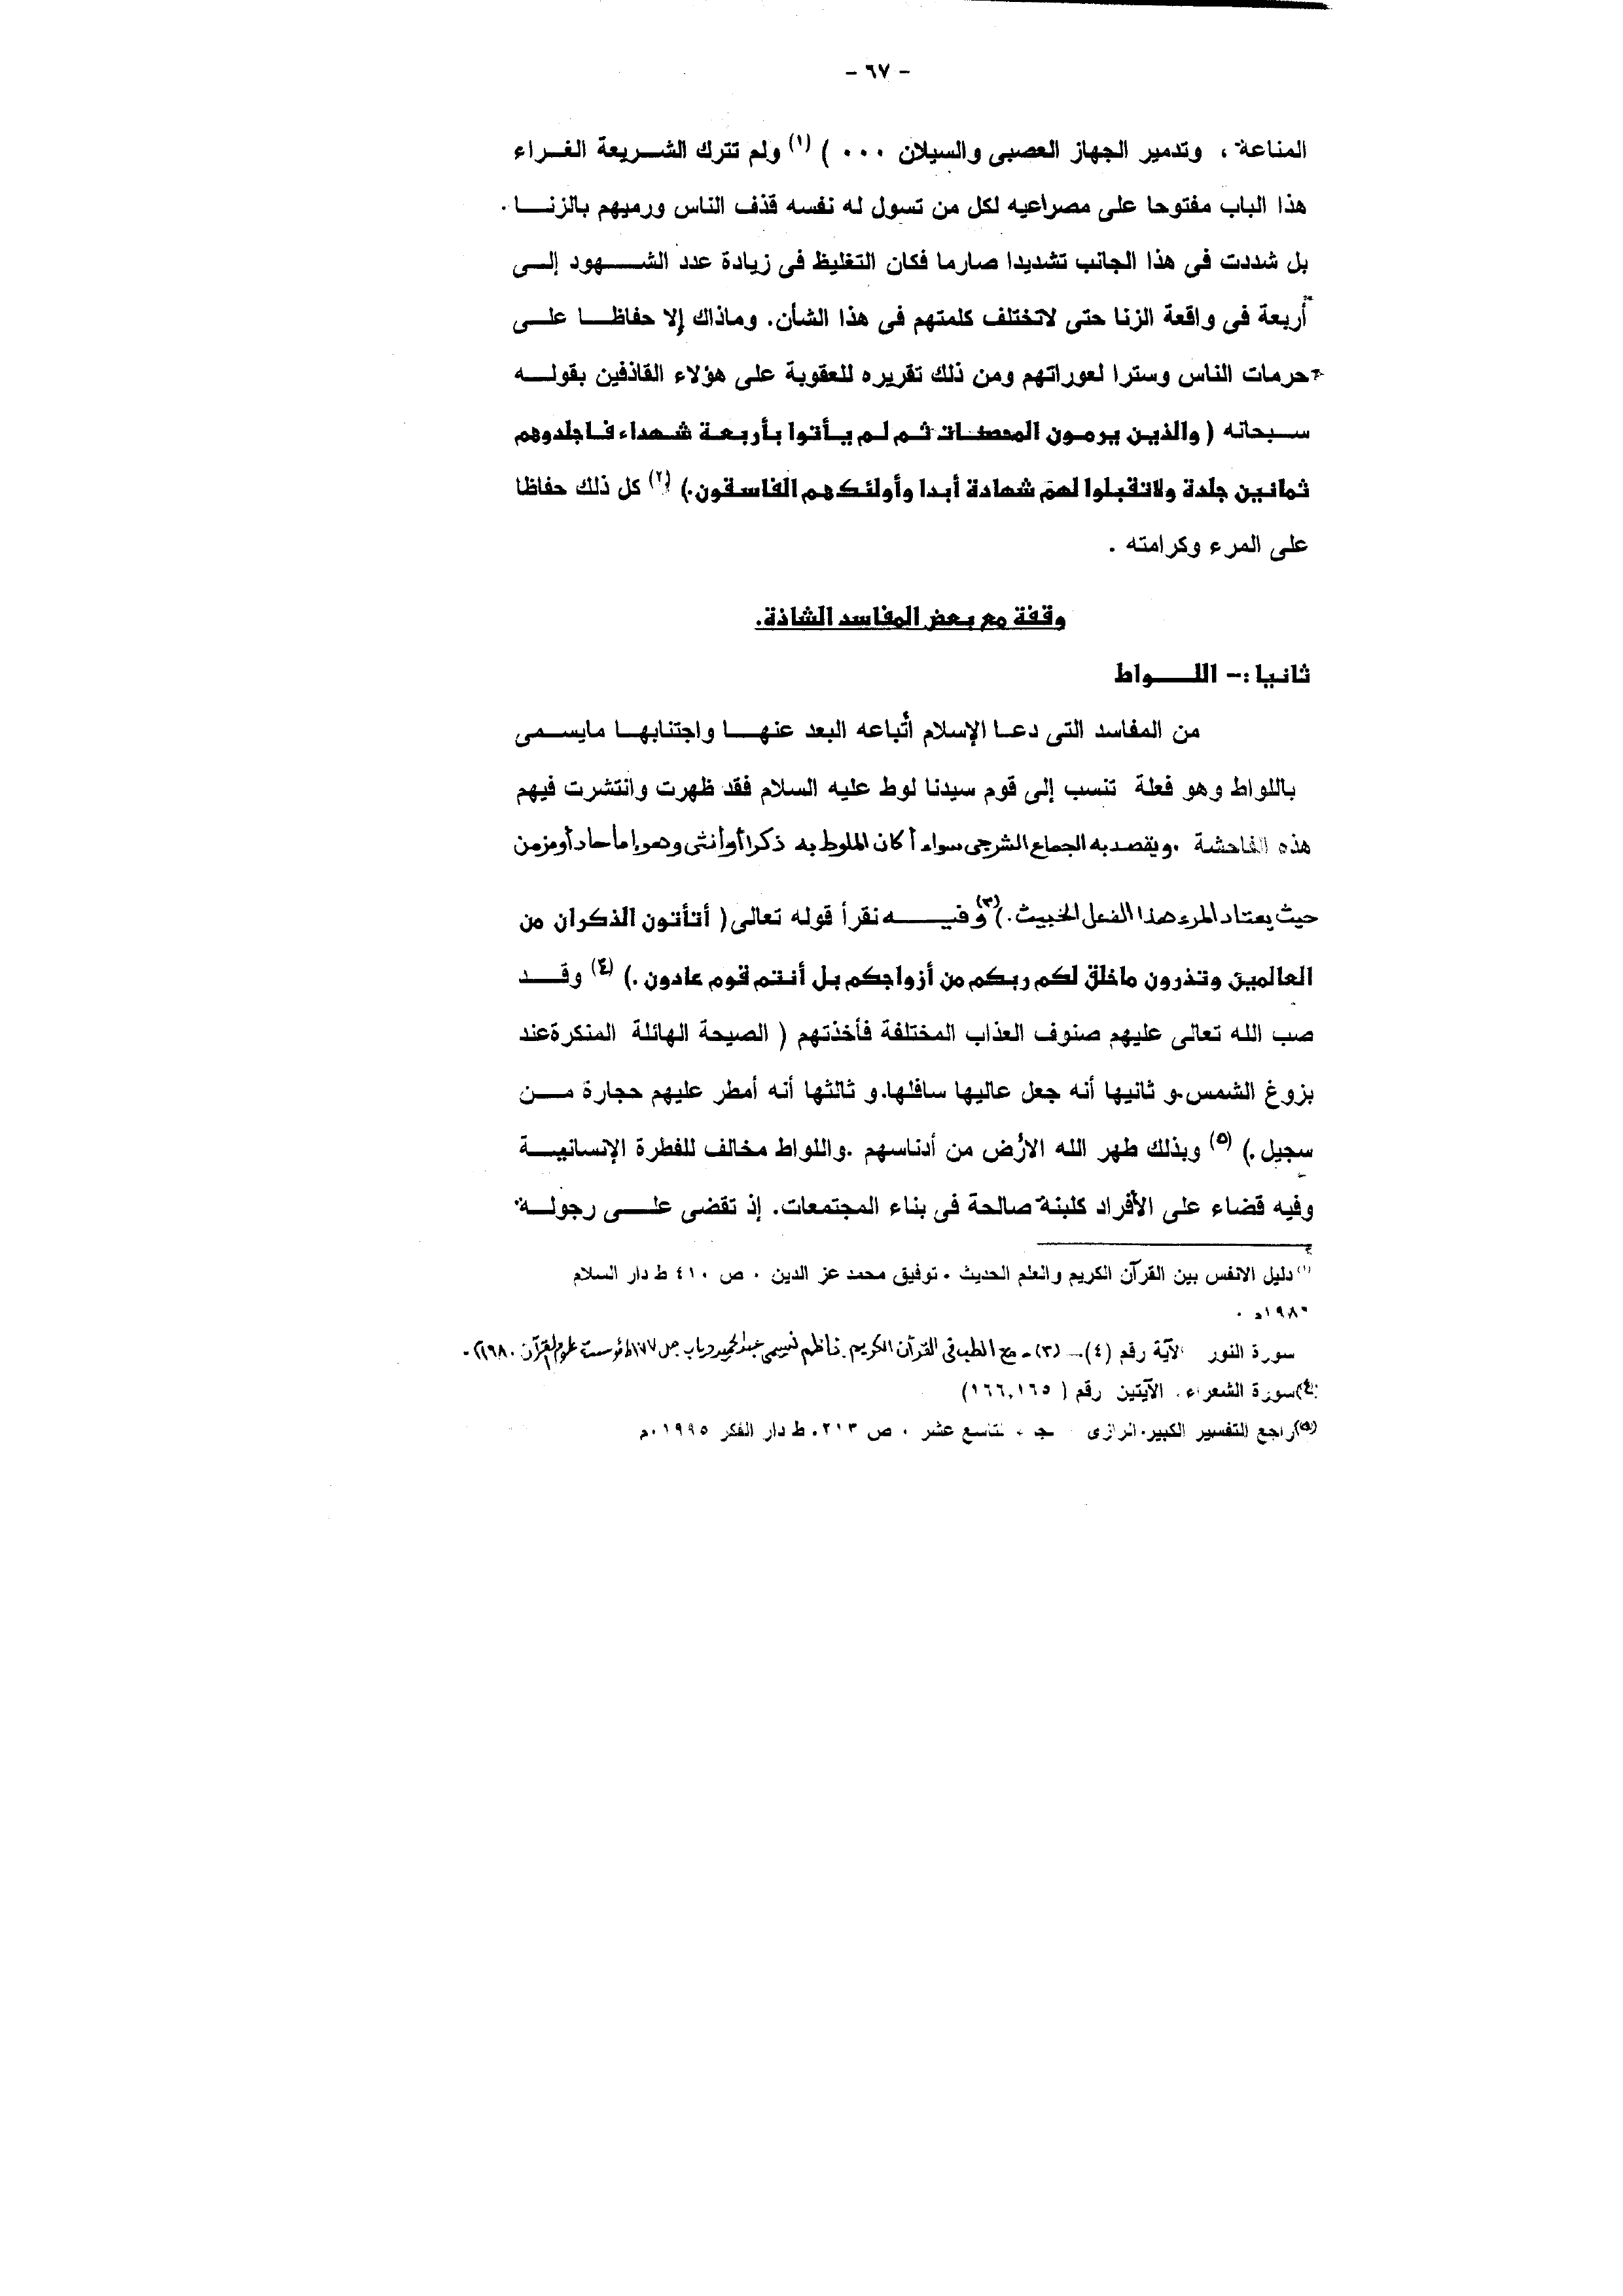 - ٦٧ -
المناعة ، وتدمير الجهاز العصبى والسيلان ٠٠٠ ) (١) ولم تترك الشريعة الغراء
هذا الباب مفتوحا على مصراعيه لكل من تسول له نفسه قذف الناس ورميهم بالزنا .
بل شددت فى هذا الجانب تشديدا صارما فكان التغليظ فى زيادة عدد الشهود إلى
أربعة فى واقعة الزنا حتى لاتختلف كلمتهم فى هذا الشأن. وماذاك إلا حفاظا على
حرمات الناس وسترا لعوراتهم ومن ذلك تقريره للعقوبة على هؤلاء القاذفين بقوله
سبحانه ( والذين يرمون المحصنات ثم لم يأتوا بأربعة شهداء فاجلدوهم
ثمانين جلدة ولاتقبلوا لهم شهادة أبدا وأولئك هم الفاسقون.) (٢) كل ذلك حفاظا
على المرء وكرامته .
وقفة مع بعض المفاسد الشاذة.
ثانيا :- اللواط
من المفاسد التى دعا الإسلام أتباعه البعد عنها واجتنابها مايسمى
باللواط وهو فعلة تنسب إلى قوم سيدنا لوط عليه السلام فقد ظهرت وانتشرت فيهم
هذه الفاحشة .ويقصد به الجماع الشرجى سواء أكان الملوط به ذكرا أو أنثى وهو إما حاد أو مزمن
حيث يعتاد المرء هذا الفعل الخبيث .) (٣) وفيه نقرأ قوله تعالى ( أتأتون الذكران من
العالمين وتذرون ماخلق لكم ربكم من أزواجكم بل أنتم قوم عادون .) (٤) وقد
صب الله تعالى عليهم صنوف العذاب المختلفة فأخذتهم ( الصيحة الهائلة المنكرة عند
بزوغ الشمس.و ثانيها أنه جعل عاليها سافلها.و ثالثها أنه أمطر عليهم حجارة من
سجيل .) (٥) وبذلك طهر الله الأرض من أدناسهم .واللواط مخالف للفطرة الإنسانية
وفيه قضاء على الأفراد كلبنة صالحة فى بناء المجتمعات. إذ تقضى على رجولة
(١) دليل الانفس بين القرآن الكريم والعلم الحديث . توفيق محمد عز الدين . ص ٤١٠ ط دار السلام
١٩٨٦م .
سورة النور الآية رقم (٤)- (٣)- مع الطب فى القرآن الكريم . ناظم نسيمى عبد الحميد دياب ص ١٧٧ ط مؤسسة علوم القرآن ١٩٨٠م.
(٤)سورة الشعراء . الآيتين رقم ( ١٦٦،١٦٥)
(٥)راجع التفسير الكبير. الرازى جـ التاسع عشر . ص ٢١٣. ط دار الفكر ١٩٩٥م.